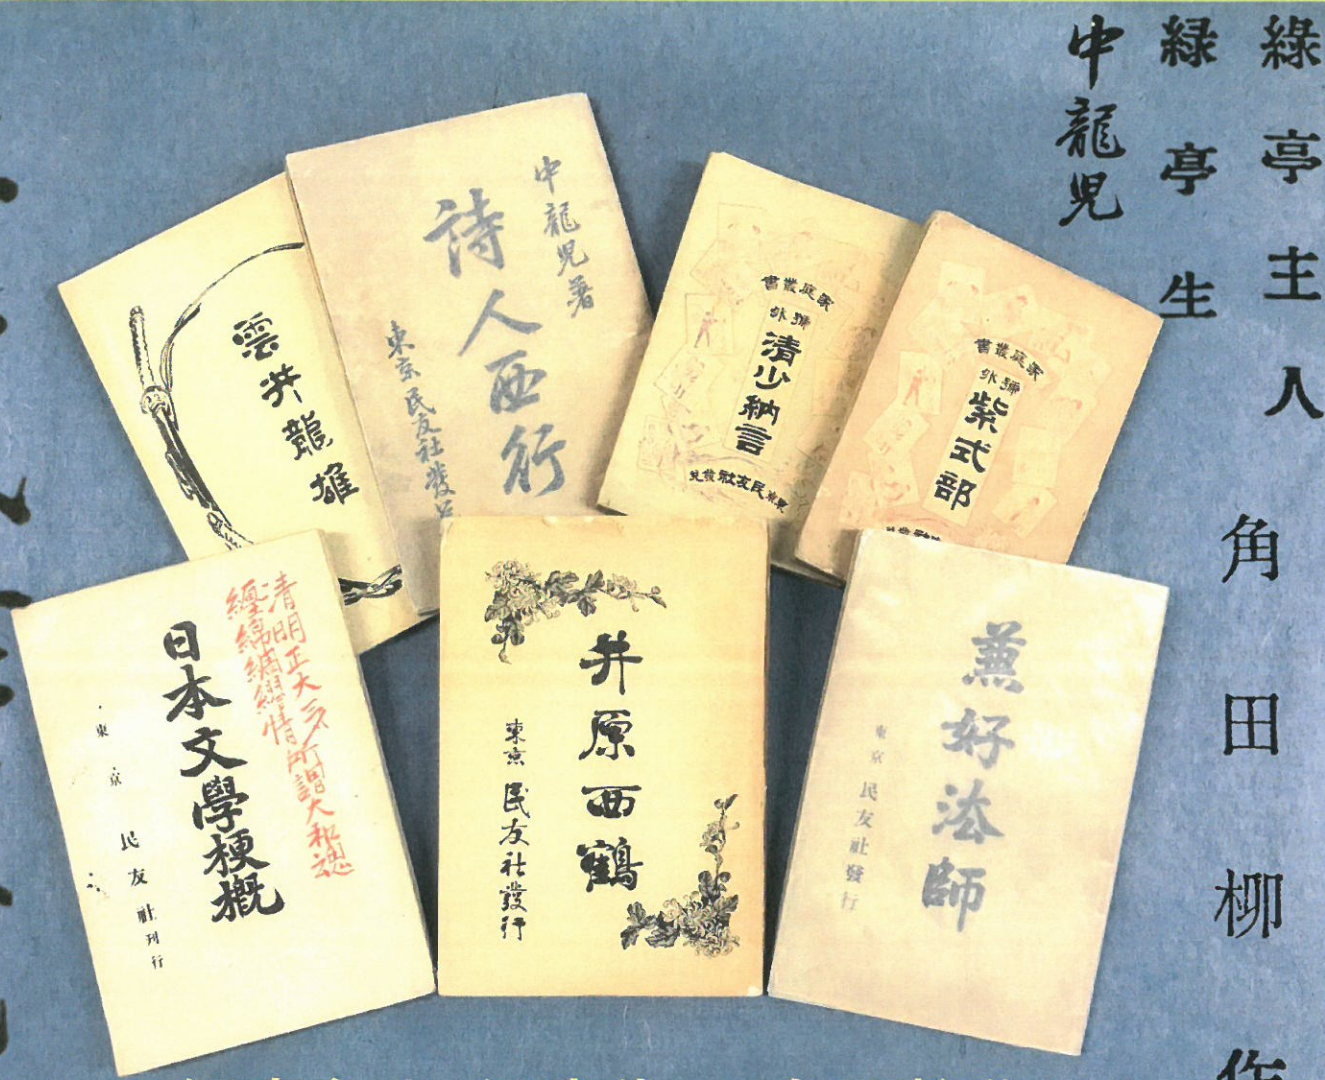 綠亭主人
緑亭生
中龍児
角田柳作
雲井龍雄
中龍児著
詩人西行
東京民友社發
家庭叢書
號外
清少納言
東京民友社發兌
家庭叢書
號外
紫式部
清明正大
所謂大和魂
纏綿
情
日本文學梗概
東京民友社刊行
井原西鶴
東京民友社發行
兼好法師
東京民友社發行